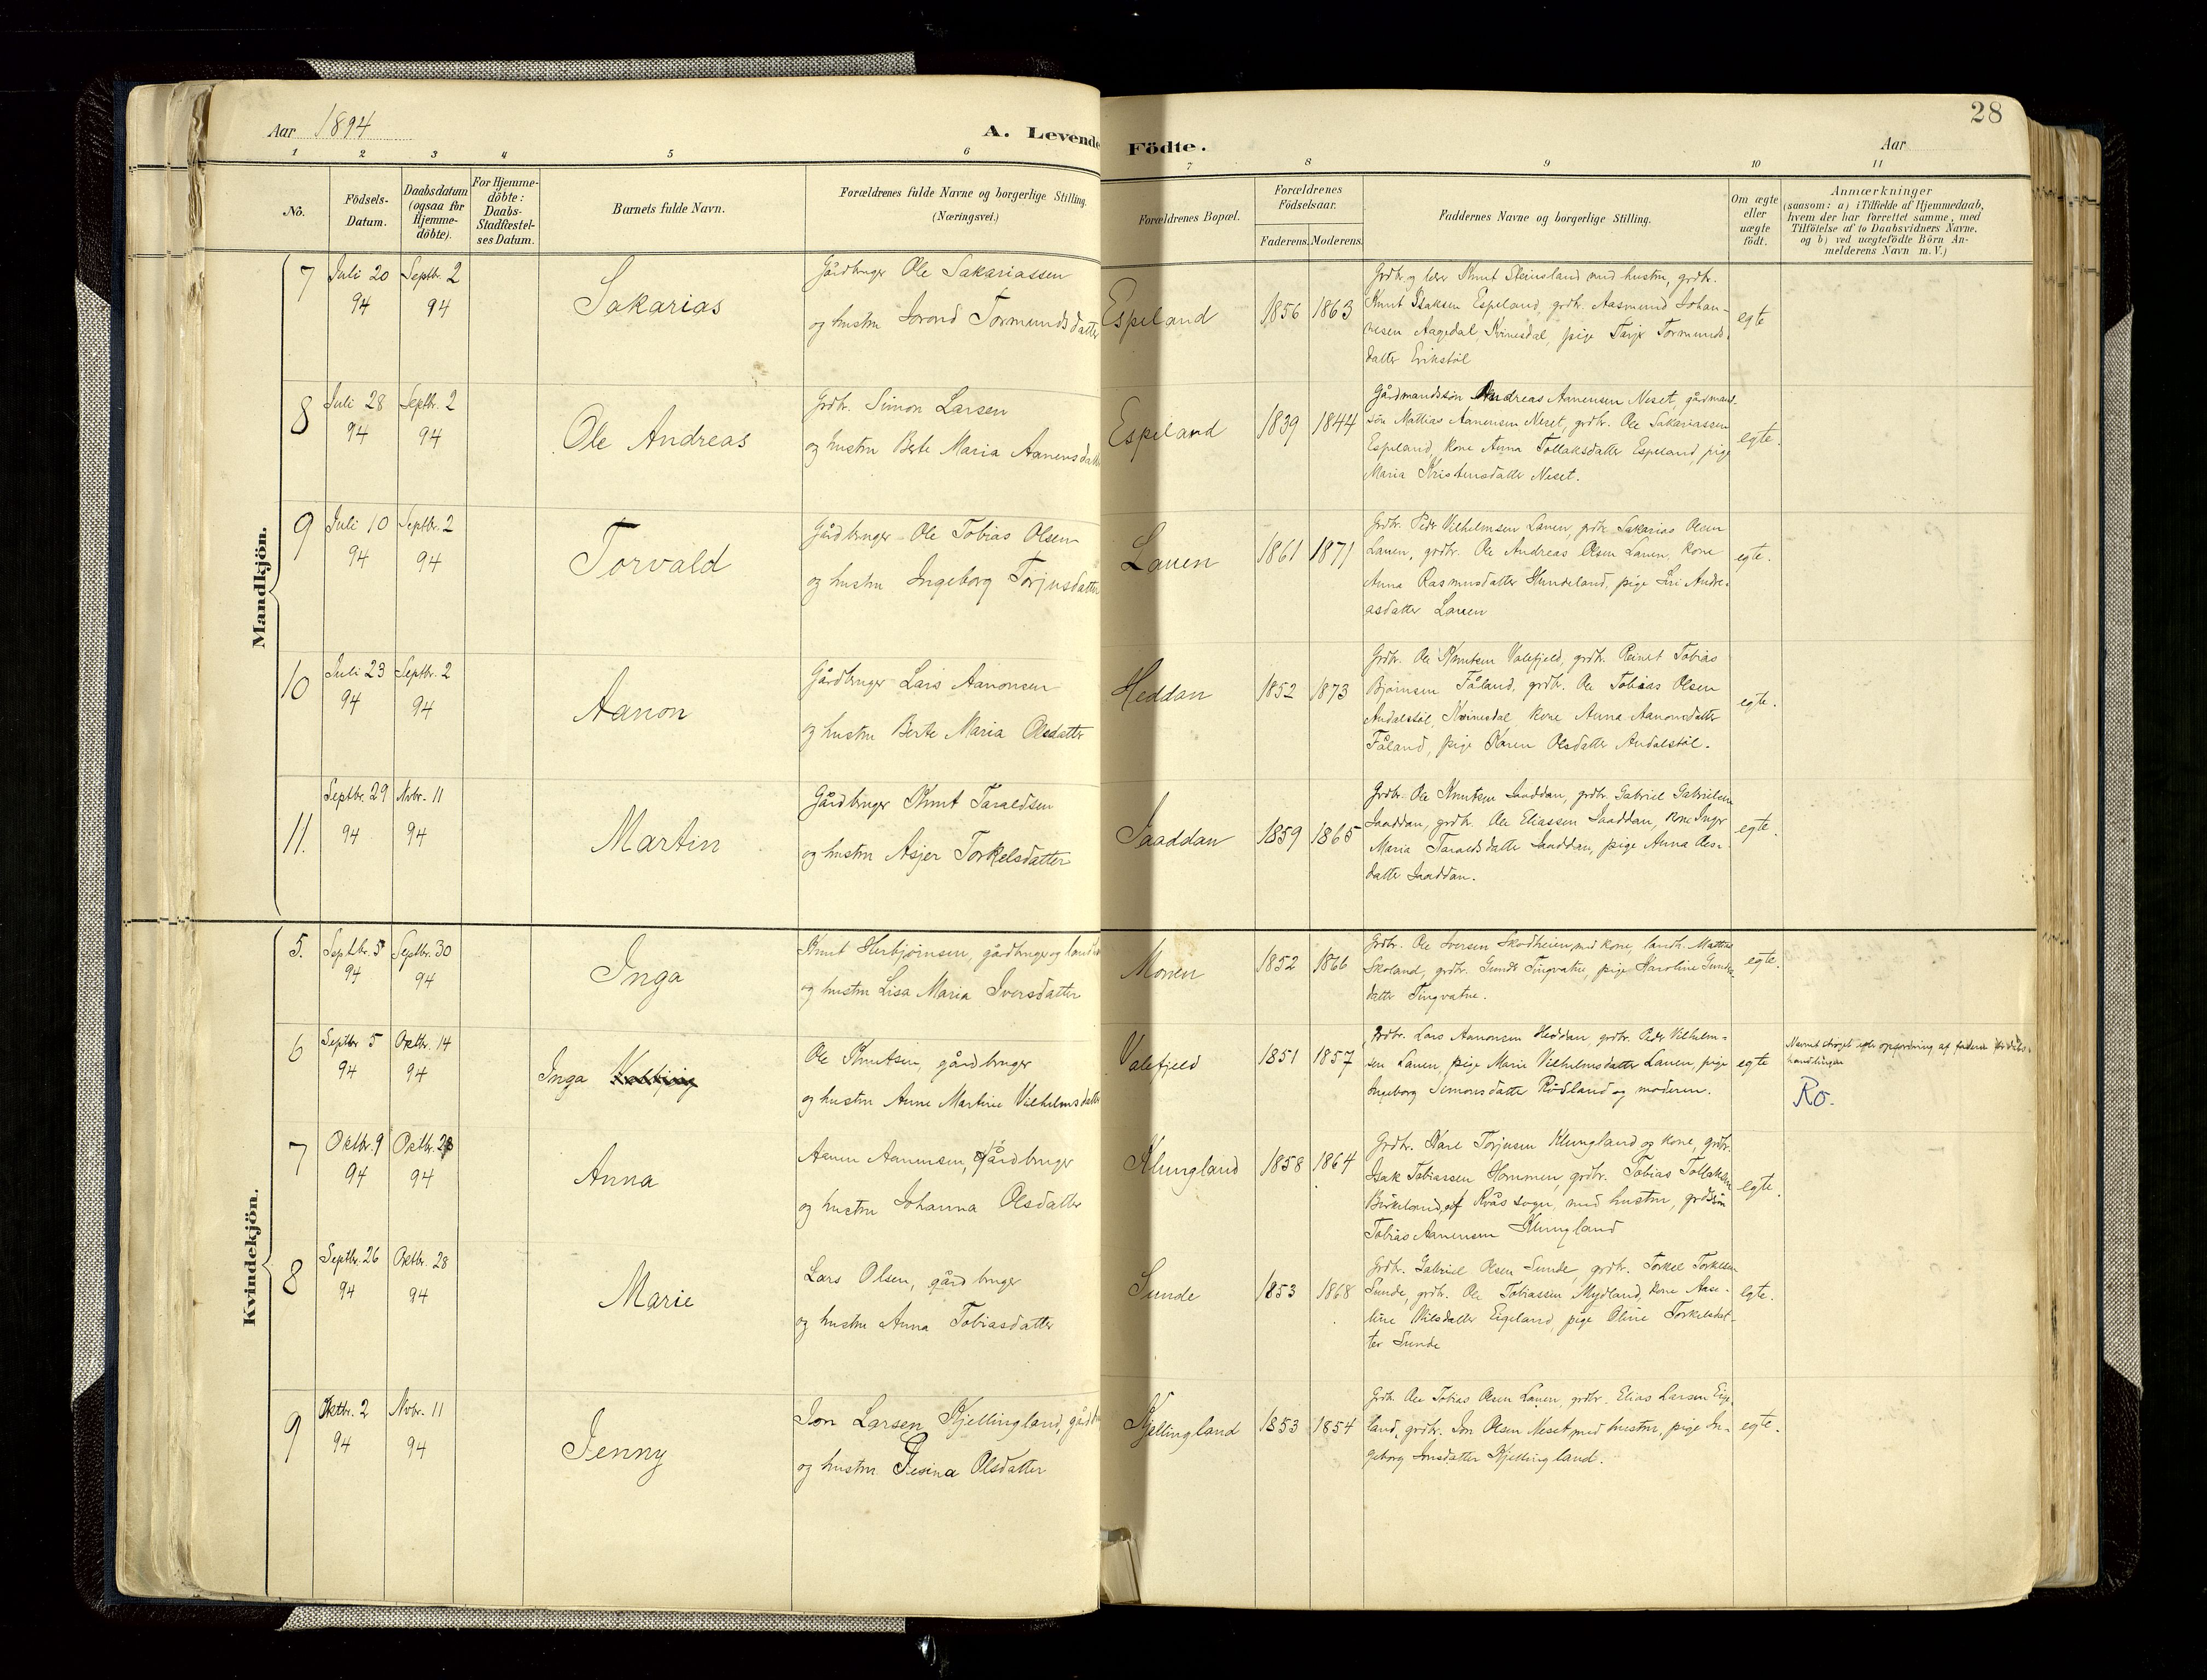 28
Aar 1894
A. Levende Födte.
Aar
1 2 3 4 5 6 7 8 9 10 11
No.
Födsels-Datum.
Daabsdatum (ogsaa for Hjemme-döbte).
For Hjemme-döbte: Daabs-Stadfæstel-ses Datum.
Barnets fulde Navn.
Forældrenes fulde Navne og borgerlige Stilling. (Næringsvei.)
Forældrenes Bopæl.
Forældrenes Födselsaar.
Faderens. Moderens.
Faddernes Navne og borgerlige Stilling.
Om ægte eller uægte födt.
Anmærkninger
(saasom: a) i Tilfælde af Hjemmedaab, hvem der har forrettet samme, med Tilföielse af to Daabsvidners Navne, og b) ved uægtefödte Börn An-melderens Navn m. V.)
Mandkjön.
7 Juli 20 94 Septbr. 2 94
Sakarias
Gårdbruger Ole Sakariassen
og hustru Torond Tormundsdatter
Espeland 1856 1863
Grdbr. og lærer Knut Steinsland med hustru, grdbr.
Knut Isaksen Espeland, grdbr. Aasmund Johan-
nesen Aagedal, Kvinesdal, pige Tarje Tormunds-
datter Erikstöl
egte
8 Juli 28 94 Septbr. 2 94
Ole Andreas
Grdbr. Simon Larsen
og hustru Berte Maria Aanensdatter
Espeland 1839 1844
Gårdmandssön Andreas Aanensen Neset, gårdmand-
sön Mattias Aanensen Neset, grdbr. Ole Sakariassen
Espeland, kone Anna Tollaksdatter Espeland, pige
Maria Kristensdatter Neset.
egte.
9 Juli 10 94 Septbr. 2 94
Torvald
Gårdbruger Ole Tobias Olsen
og hustru Ingeborg Torjusdatter
Lauen 1861 1871
Grdbr. Peder Vilhelmsen Lauen, grdbr. Sakarias Olsen
Lauen, grdbr. Ole Andreas Olsen Lauen, kone
Anna Rasmusdatter Hundeland, pige Siri Andre-
asdatter Lauen
egte.
10 Juli 23 94 Septbr. 2 94
Aanon
Gårdbruger Lars Aanonsen
og hustru Berte Maria Olsdatter
Heddan 1852 1873
Grdbr. Ole Knutsen Valefjeld, grdbr. Reinert Tobias
Bjørnsen Fåland, grdbr. Ole Tobias Olsen
Andalstöl, Kvinesdal, kone Anna Aanonsdatter
Fåland, pige Karen Olsdatter Andalstöl.
egte.
11. Septbr. 29 94 Nvbr. 11 94
Martin
Gårdbruger Knut Taraldsen
og hustru Asjer Torkelsdatter
Saaddan 1859 1865
Grdbr. Ole Knutsen Saaddan, grdbr. Gabriel Gabrielsen
Saaddan, grdbr. Ole Eliassen Saaddan, kone Inger
Maria Taraldsdatter Saaddan, pige Anna Ols-
datter Saaddan.
egte.
Kvindekjön.
5. Septbr. 5 94 Septbr. 30 94
Inga
Knut Herbjørnsen, gårdbruger og
og hustru Lisa Maria Iversdatter
Monen 1852 1866
Grdbr. Ole Iversen Skodheien med kone, landh. Mattias
Skoland, grdbr. Gunder Tingvatne, pige Karoline Gunder-
datter Tingvatne.
egte.
6 Septbr 5 94 Oktbr. 14 94
Inga
Ole Knutsen, gårdbruger
og hustru Anne Martine Vilhelmsdatter
Valefjeld 1851 1857
Grdbr. Lars Aanonsen Heddan, grdbr. Peder Vilhelm-
sen Lauen, pige Marie Vilhelmsdatter Lauen, pige
Ingeborg Simonsdatter Rödland og moderen.
egte
Navnet strøget efter opfordring af faderen
Ro.
7 Oktbr. 9 94 Oktbr. 28 94
Anna
Aanen Aanensen, Gårdbruger
og hustru Johanna Olsdatter
Klungland 1858 1864
Grdbr. Karl Torjusen Klungland og kone, grdbr.
Isak Tobiassen Hommen grdbr. Tobias Tollaksen
Birkeland, af Kvås sogn, med hustru, grdbrsön
Tobias Aanensen Klungland
egte.
8 Septbr. 26 94 Oktbr. 28 94
Marie
Lars Olsen, gårdbruger
og hustru Anna Tobiasdatter
Sunde 1853 1868
Grdbr. Gabriel Olsen Sunde, grdbr. Torkel Torkelsen
Sunde, grdbr. Ole Tobiassen Mydland, kone Aase-
line Nilsdatter Eigeland, pige Oline Torkelsdat-
ter Sunde
egte.
9 Oktbr. 2 94 Nvbr. 11 94
Jenny
Jon Larsen Kjellingland, gårdbr
og hustru Gesina Olsdatter
Kjellingland 1853 1854
Grdbr. Ole Tobias Olsen Lauen, grdbr. Elias Larsen Eige-
land, grdbr. Jon Olsen Neset med hustru, pige In-
geborg Jonsdatter Kjellingland.
egte.